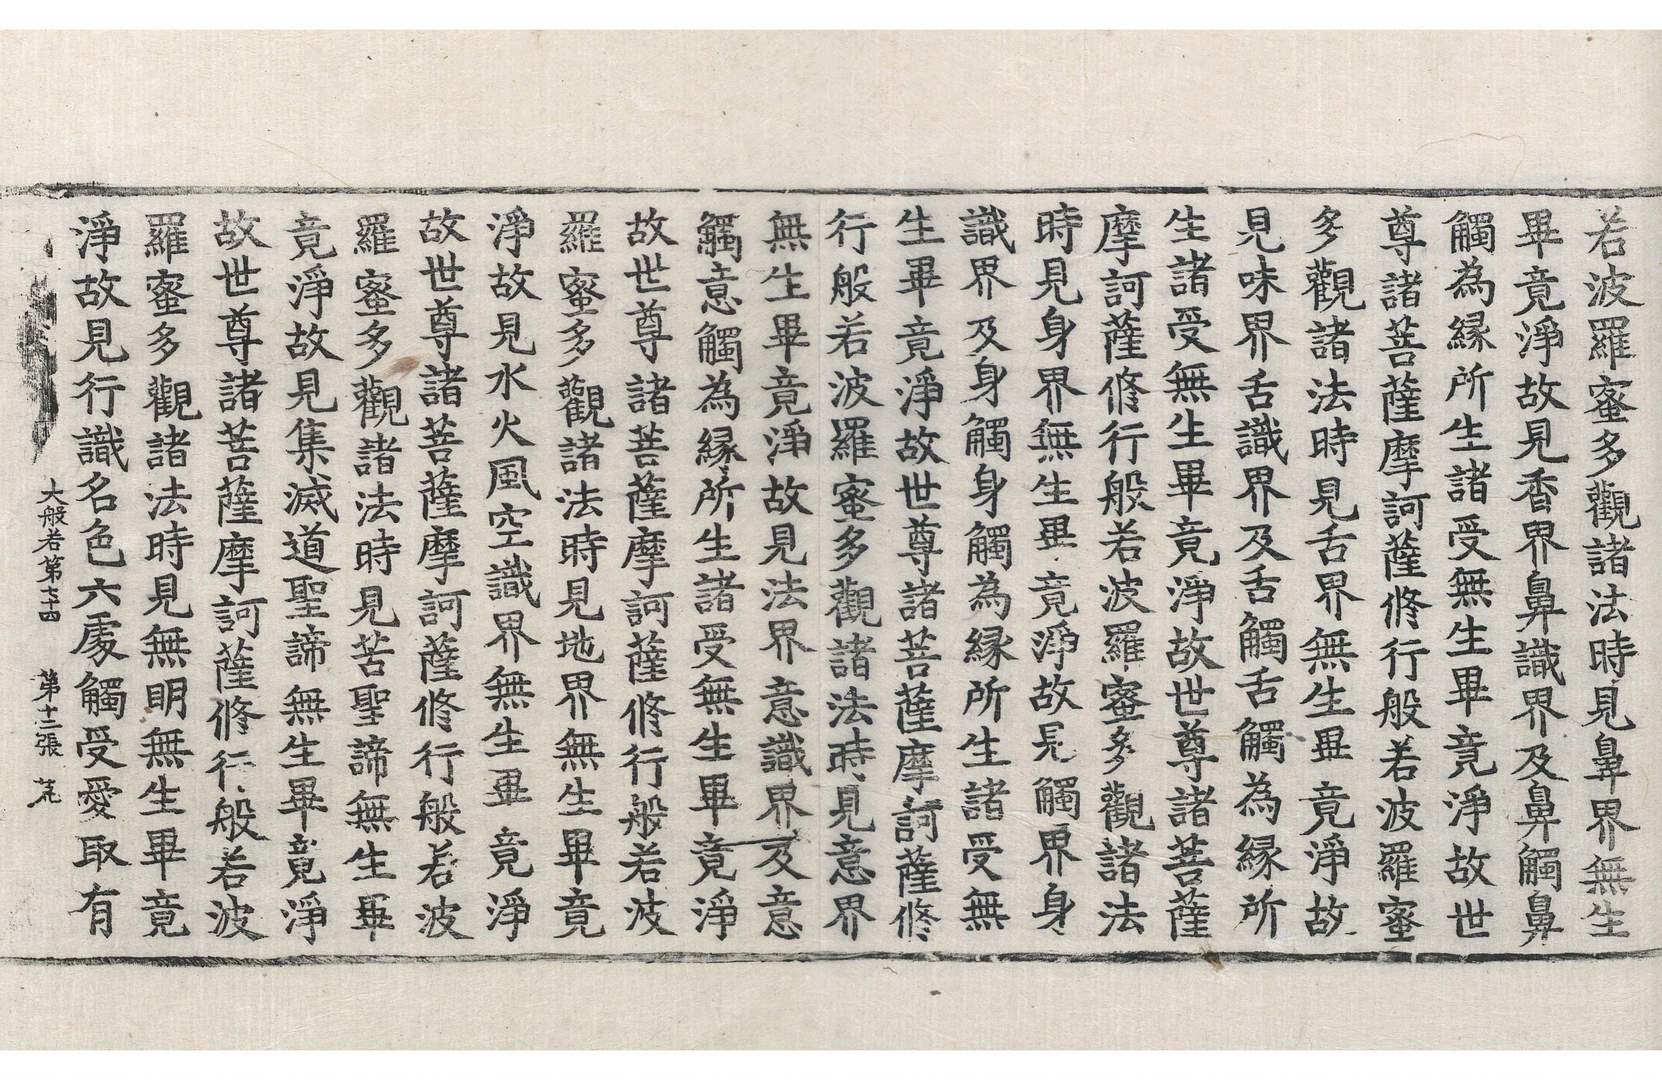 若波羅蜜多觀諸法時見鼻界無生
畢竟淨故見香界鼻識界及鼻觸鼻
觸為緣所生諸受無生畢竟淨故世
尊諸菩薩摩訶薩修行般若波羅蜜
多觀諸法時見舌界無生畢竟淨故
見味界舌識界及舌觸舌觸為緣所
生諸受無生畢竟淨故世尊諸菩薩
摩訶薩修行般若波羅蜜多觀諸法
時見身界無生畢竟淨故見觸界身
識界及身觸身觸為緣所生諸受無
生畢竟淨故世尊諸菩薩摩訶薩修
行般若波羅蜜多觀諸法時見意界
無生畢竟淨故見法界意識界及意
觸意觸為緣所生諸受無生畢竟淨
故世尊諸菩薩摩訶薩修行般若波
羅蜜多觀諸法時見地界無生畢竟
淨故見水火風空識界無生畢竟淨
故世尊諸菩薩摩訶薩修行般若波
羅蜜多觀諸法時見苦聖諦無生畢
竟淨故見集滅道聖諦無生畢竟淨
故世尊諸菩薩摩訶薩修行般若波
羅蜜多觀諸法時見無明無生畢竟
淨故見行識名色六處觸受愛取有
大般若第七十四 第十二張 荒